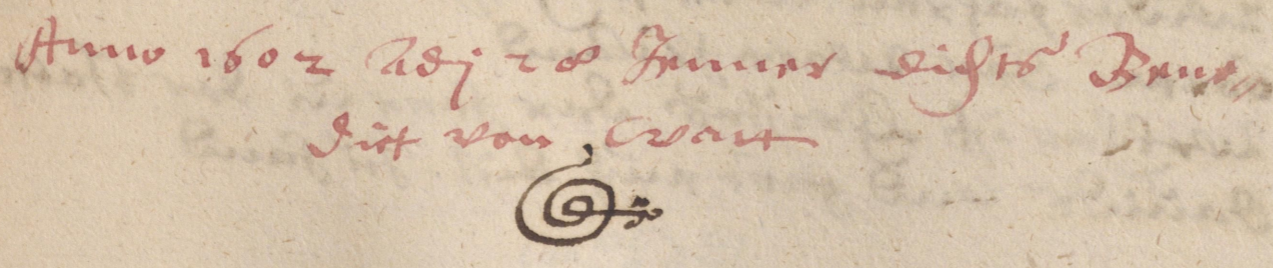 Anno 1602 Adj 28 Jenner dichts Bene-
dict von Watt